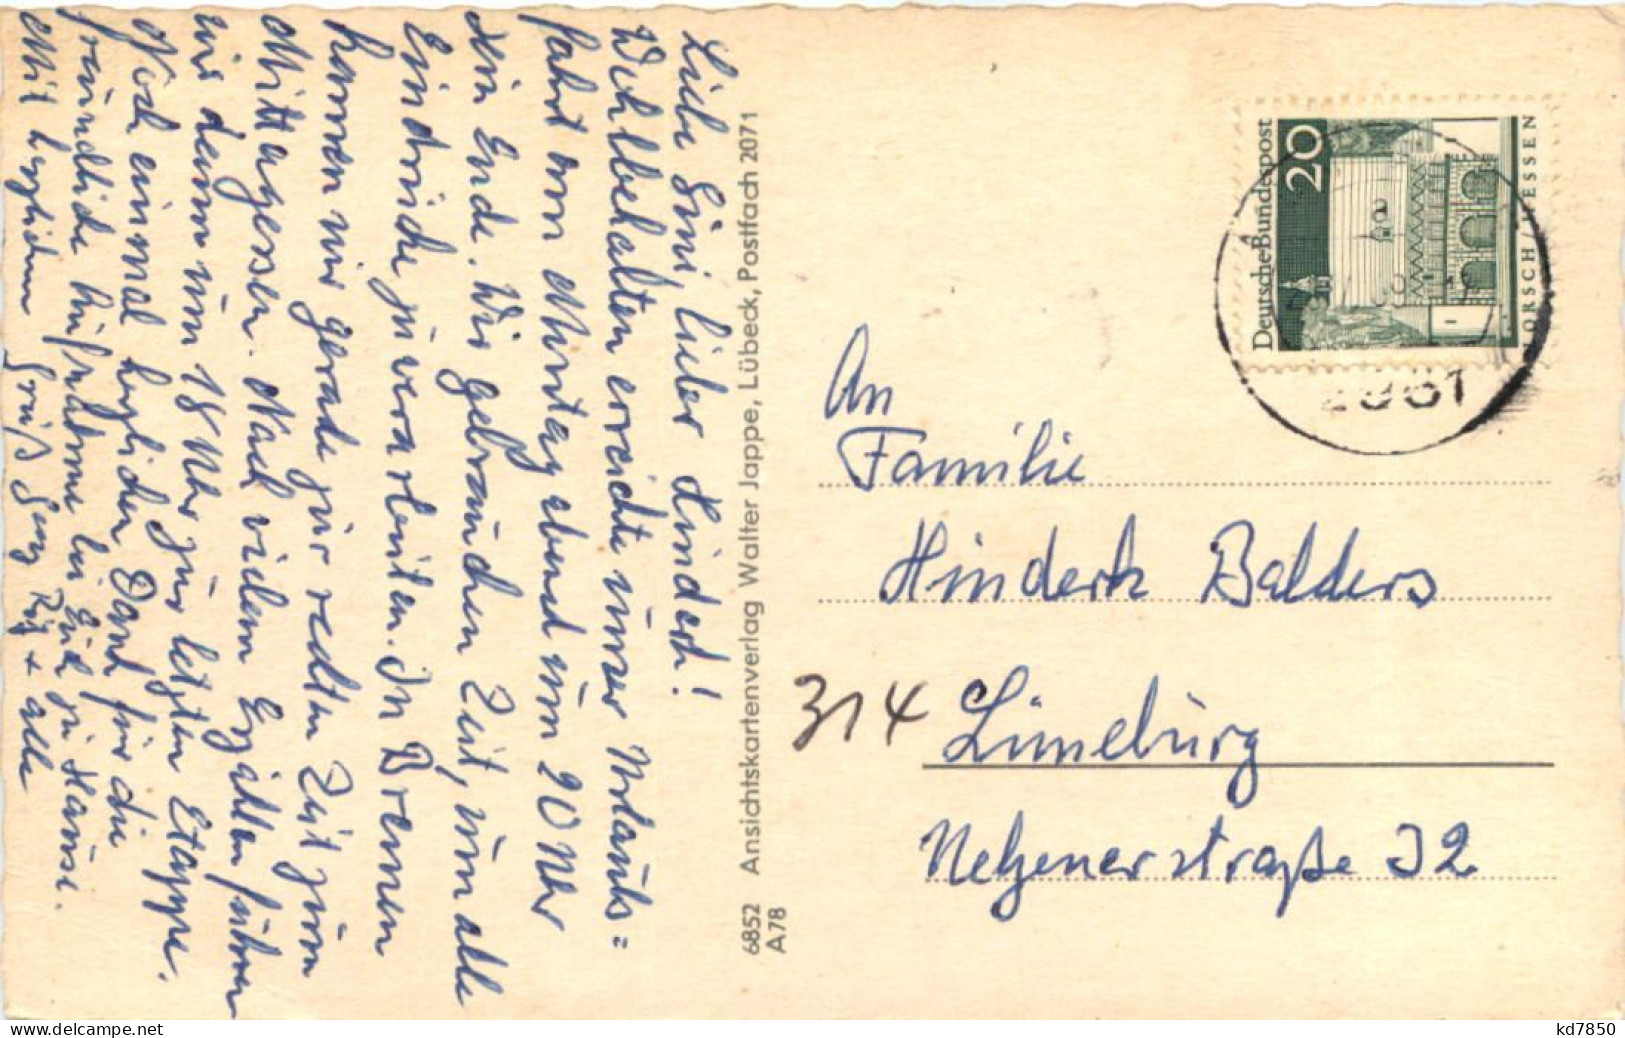 Liebe Sini, lieber Hindert!
Wohlbehalten erreichte unser Urlaubs=
fahrt am Montagabend um 20 Uhr
sein Ende. Wir gebrauchen Zeit, um alle
Eindrücke zu verarbeiten. In Bremen
kamen wir gerade zur rechten Zeit zum
Mittagessen. Nach vielem Erzählen fuhren
wir dann um 18 Uhr zur letzten Etappe.
Noch einmal herzlichen Dank für die
freundliche Aufnahme bei Euch zu Hause.
Mit herzlichem Gruß + alle
6852 Ansichtskartenverlag Walter Jappe, Lübeck, Postfach 2071
A78
Deutsche Bundespost
20
LORSCH/HESSEN
2861
An
Familie
Hinderk Balders
314 Lüneburg
Netzener straße 32
www.delcampe.net
kd7850